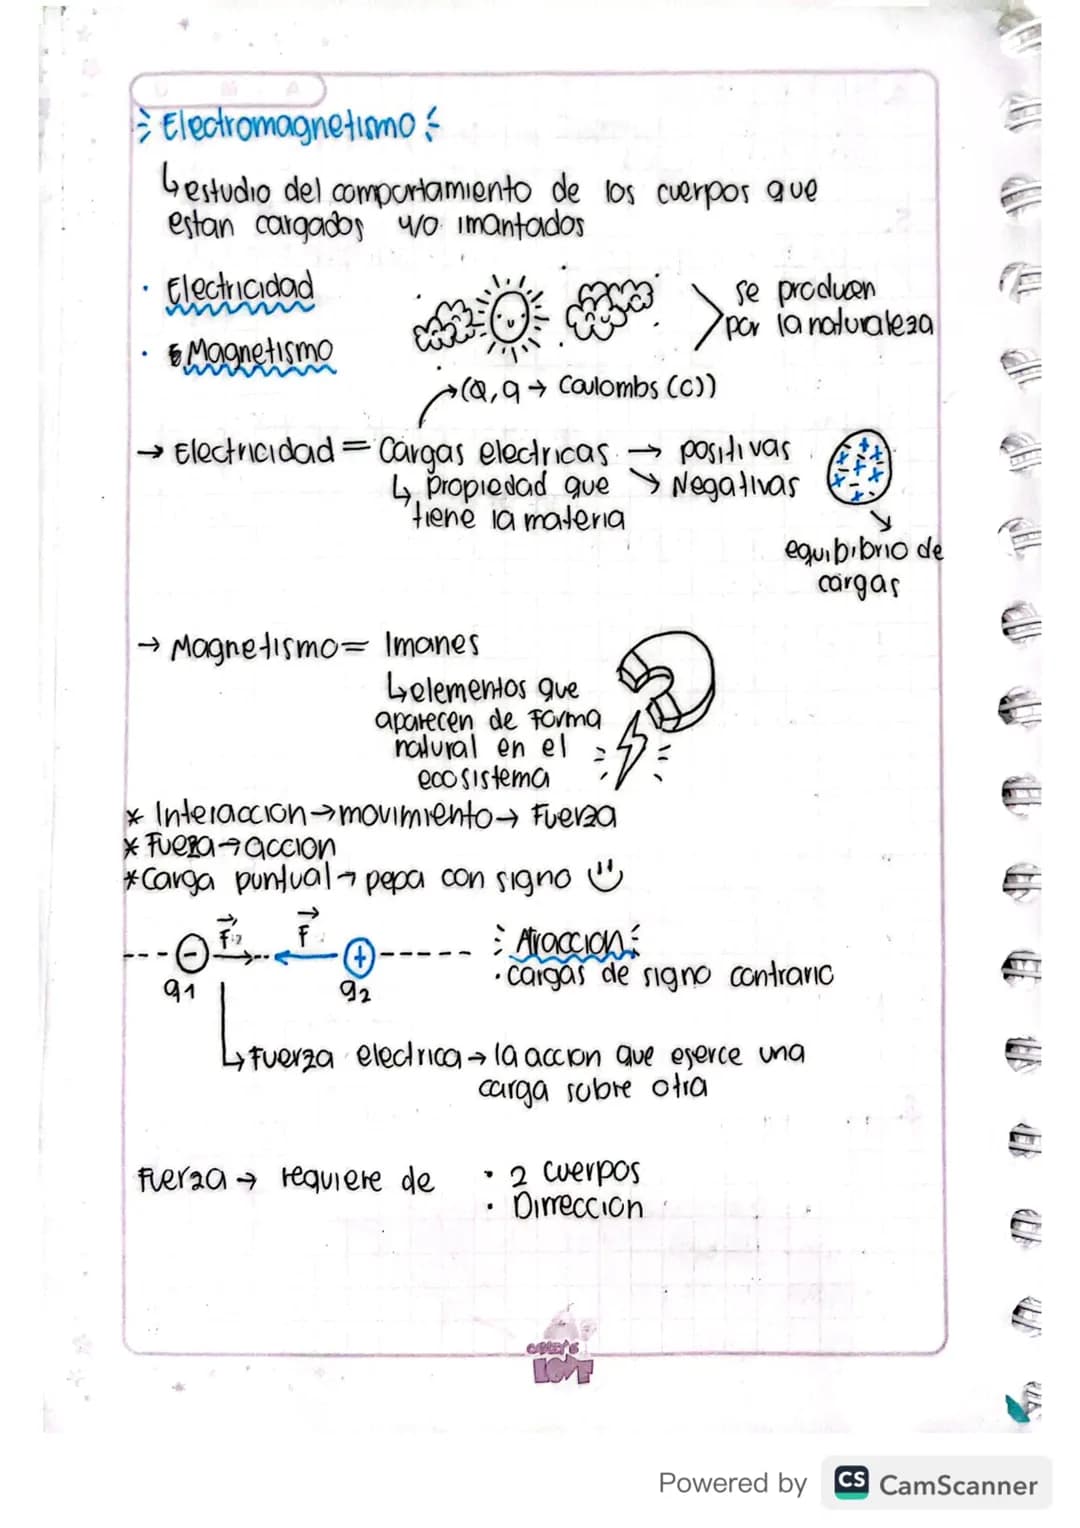 Electromagnetismo
↳ estudio del comportamiento de los cuerpos que
estan cargados y/o imantados
· Electricidad
· Magnetismo
se producen
por la naturaleza
(Q, q → Coulombs (C))
→ Electricidad = Cargas electricas → positivas
↳ Propiedad que ↘ Negativas
tiene la materia
equibibrio de
cargas
→ Magnetismo = Imanes
↳ elementos que
aparecen de forma
natural en el
ecosistema
* Interaccion → movimiento → Fuerza
* Fuerza → accion
* Carga puntual → pepa con signo
F F
- +
q1 q2
Atraccion
· cargas de signo contrario
↳ Fuerza electrica → la accion que eserce una
carga sobre otra
Fuerza → requiere de · 2 cuerpos
· Dirreccion
LOVE
Powered by CS CamScanner